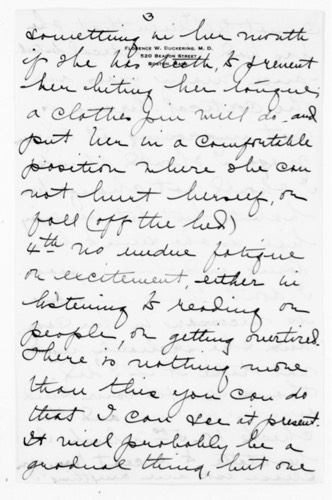 3
FLORENCE W. DUCKERING, M. D.
520 BEACON STREET
something in her mouth
if she has teeth, to prevent
her biting her tongue,
a clothes pin will do and
put her in a comfortable
position where she can
not hurt herself, or
fall (off the bed)
4th no undue fatigue
or excitement, either in
listening to reading or
people, or getting overtired.
There is nothing more
than this you can do
that I can see at present.
It will probably be a
gradual thing, but one